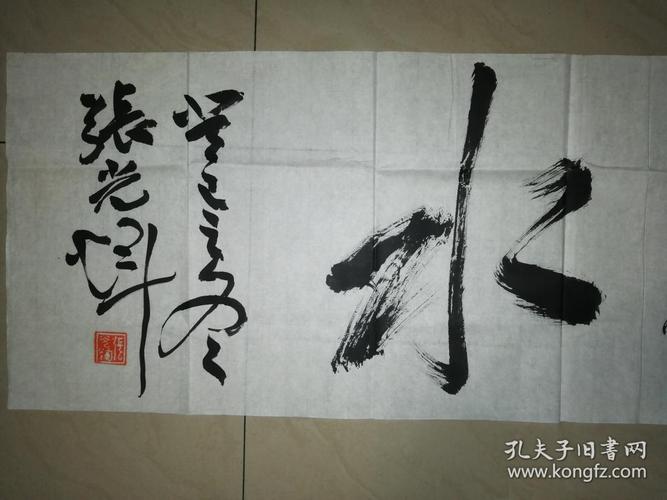 水
癸巳之冬
張光
孔夫子旧书网
www.kongfz.com